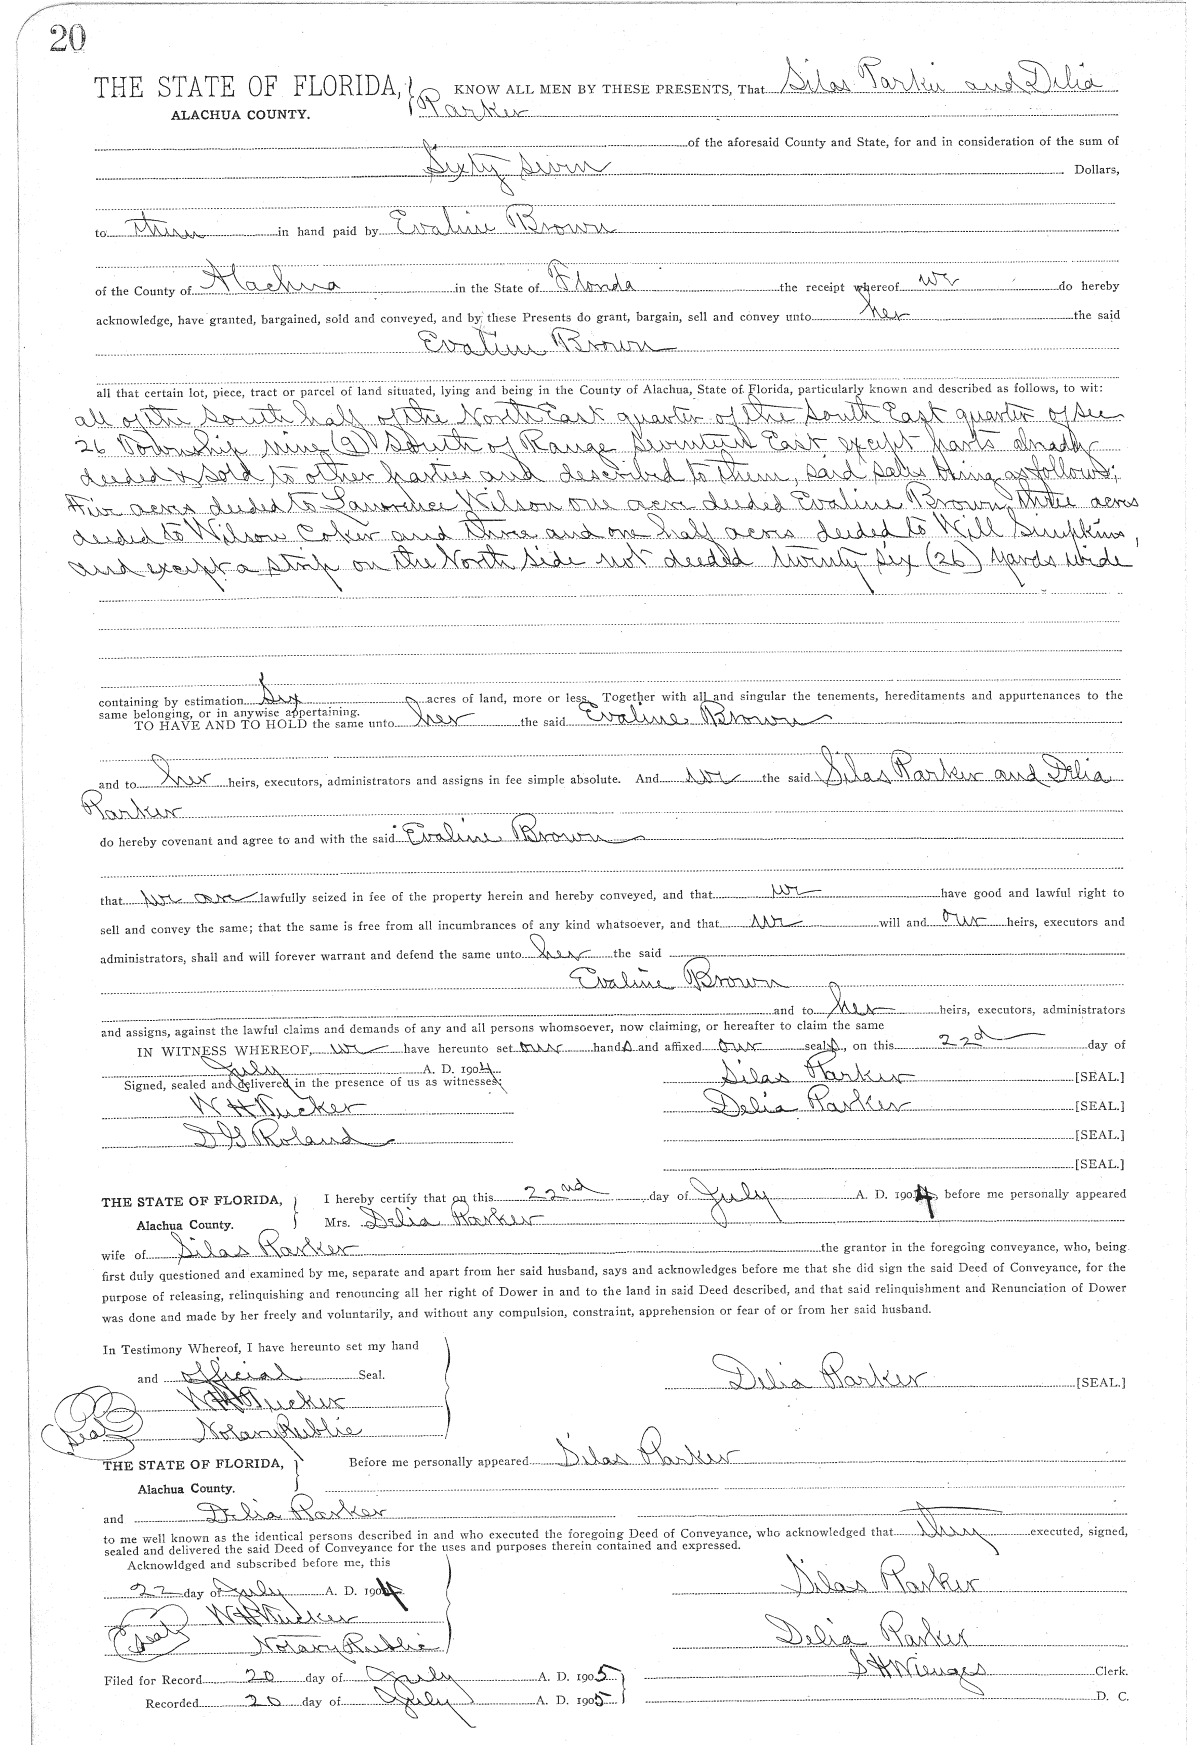 20
THE STATE OF FLORIDA, KNOW ALL MEN BY THESE PRESENTS, That Silas Parker and Delia
ALACHUA COUNTY. Parker
of the aforesaid County and State, for and in consideration of the sum of
Sixty seven Dollars,
to them in hand paid by Evaline Brown
of the County of Alachua in the State of Florida the receipt whereof we do hereby
acknowledge, have granted, bargained, sold and conveyed, and by these Presents do grant, bargain, sell and convey unto her the said
Evaline Brown
all that certain lot, piece, tract or parcel of land situated, lying and being in the County of Alachua, State of Florida, particularly known and described as follows, to wit:
all of the South half of the North East quarter of the South East quarter of Sec
26 Township nine (9) South of Range Seventeen East except parts already
deeded & sold to other parties and described to them, said sales being as follows;
Five acres deeded to Lawrence Wilson one acre deeded Evaline Brown, three acres
deeded to Wilson Coker and three and one half acres deeded to Will Simpkins,
and except a strip on the North side not deeded twenty six (26) yards wide
containing by estimation Six acres of land, more or less. Together with all and singular the tenements, hereditaments and appurtenances to the
same belonging, or in anywise appertaining.
TO HAVE AND TO HOLD the same unto her the said Evaline Brown
and to her heirs, executors, administrators and assigns in fee simple absolute. And we the said Silas Parker and Delia
Parker
do hereby covenant and agree to and with the said Evaline Brown
that we are lawfully seized in fee of the property herein and hereby conveyed, and that we have good and lawful right to
sell and convey the same; that the same is free from all incumbrances of any kind whatsoever, and that we will and our heirs, executors and
administrators, shall and will forever warrant and defend the same unto her the said
Evaline Brown
and to her heirs, executors, administrators
and assigns, against the lawful claims and demands of any and all persons whomsoever, now claiming, or hereafter to claim the same
IN WITNESS WHEREOF, we have hereunto set our hands and affixed our seals, on this 22d day of
July A. D. 1904
Signed, sealed and delivered in the presence of us as witnesses: Silas Parker [SEAL.]
W H Tucker Delia Parker [SEAL.]
D G Roland [SEAL.]
[SEAL.]
THE STATE OF FLORIDA, I hereby certify that on this 22nd day of July A. D. 1904, before me personally appeared
Alachua County. Mrs. Delia Parker
wife of Silas Parker the grantor in the foregoing conveyance, who, being
first duly questioned and examined by me, separate and apart from her said husband, says and acknowledges before me that she did sign the said Deed of Conveyance, for the
purpose of releasing, relinquishing and renouncing all her right of Dower in and to the land in said Deed described, and that said relinquishment and Renunciation of Dower
was done and made by her freely and voluntarily, and without any compulsion, constraint, apprehension or fear of or from her said husband.
In Testimony Whereof, I have hereunto set my hand
and official Seal. Delia Parker [SEAL.]
W H Tucker
Seal Notary Public
THE STATE OF FLORIDA, Before me personally appeared Silas Parker
Alachua County.
and Delia Parker
to me well known as the identical persons described in and who executed the foregoing Deed of Conveyance, who acknowledged that they executed, signed,
sealed and delivered the said Deed of Conveyance for the uses and purposes therein contained and expressed.
Acknowldged and subscribed before me, this
22 day of July A. D. 1904 Silas Parker
W H Tucker
Seal Notary Public Delia Parker
Filed for Record 20 day of July A. D. 1905 S H Wienges Clerk.
Recorded 20 day of July A. D. 1905 D. C.